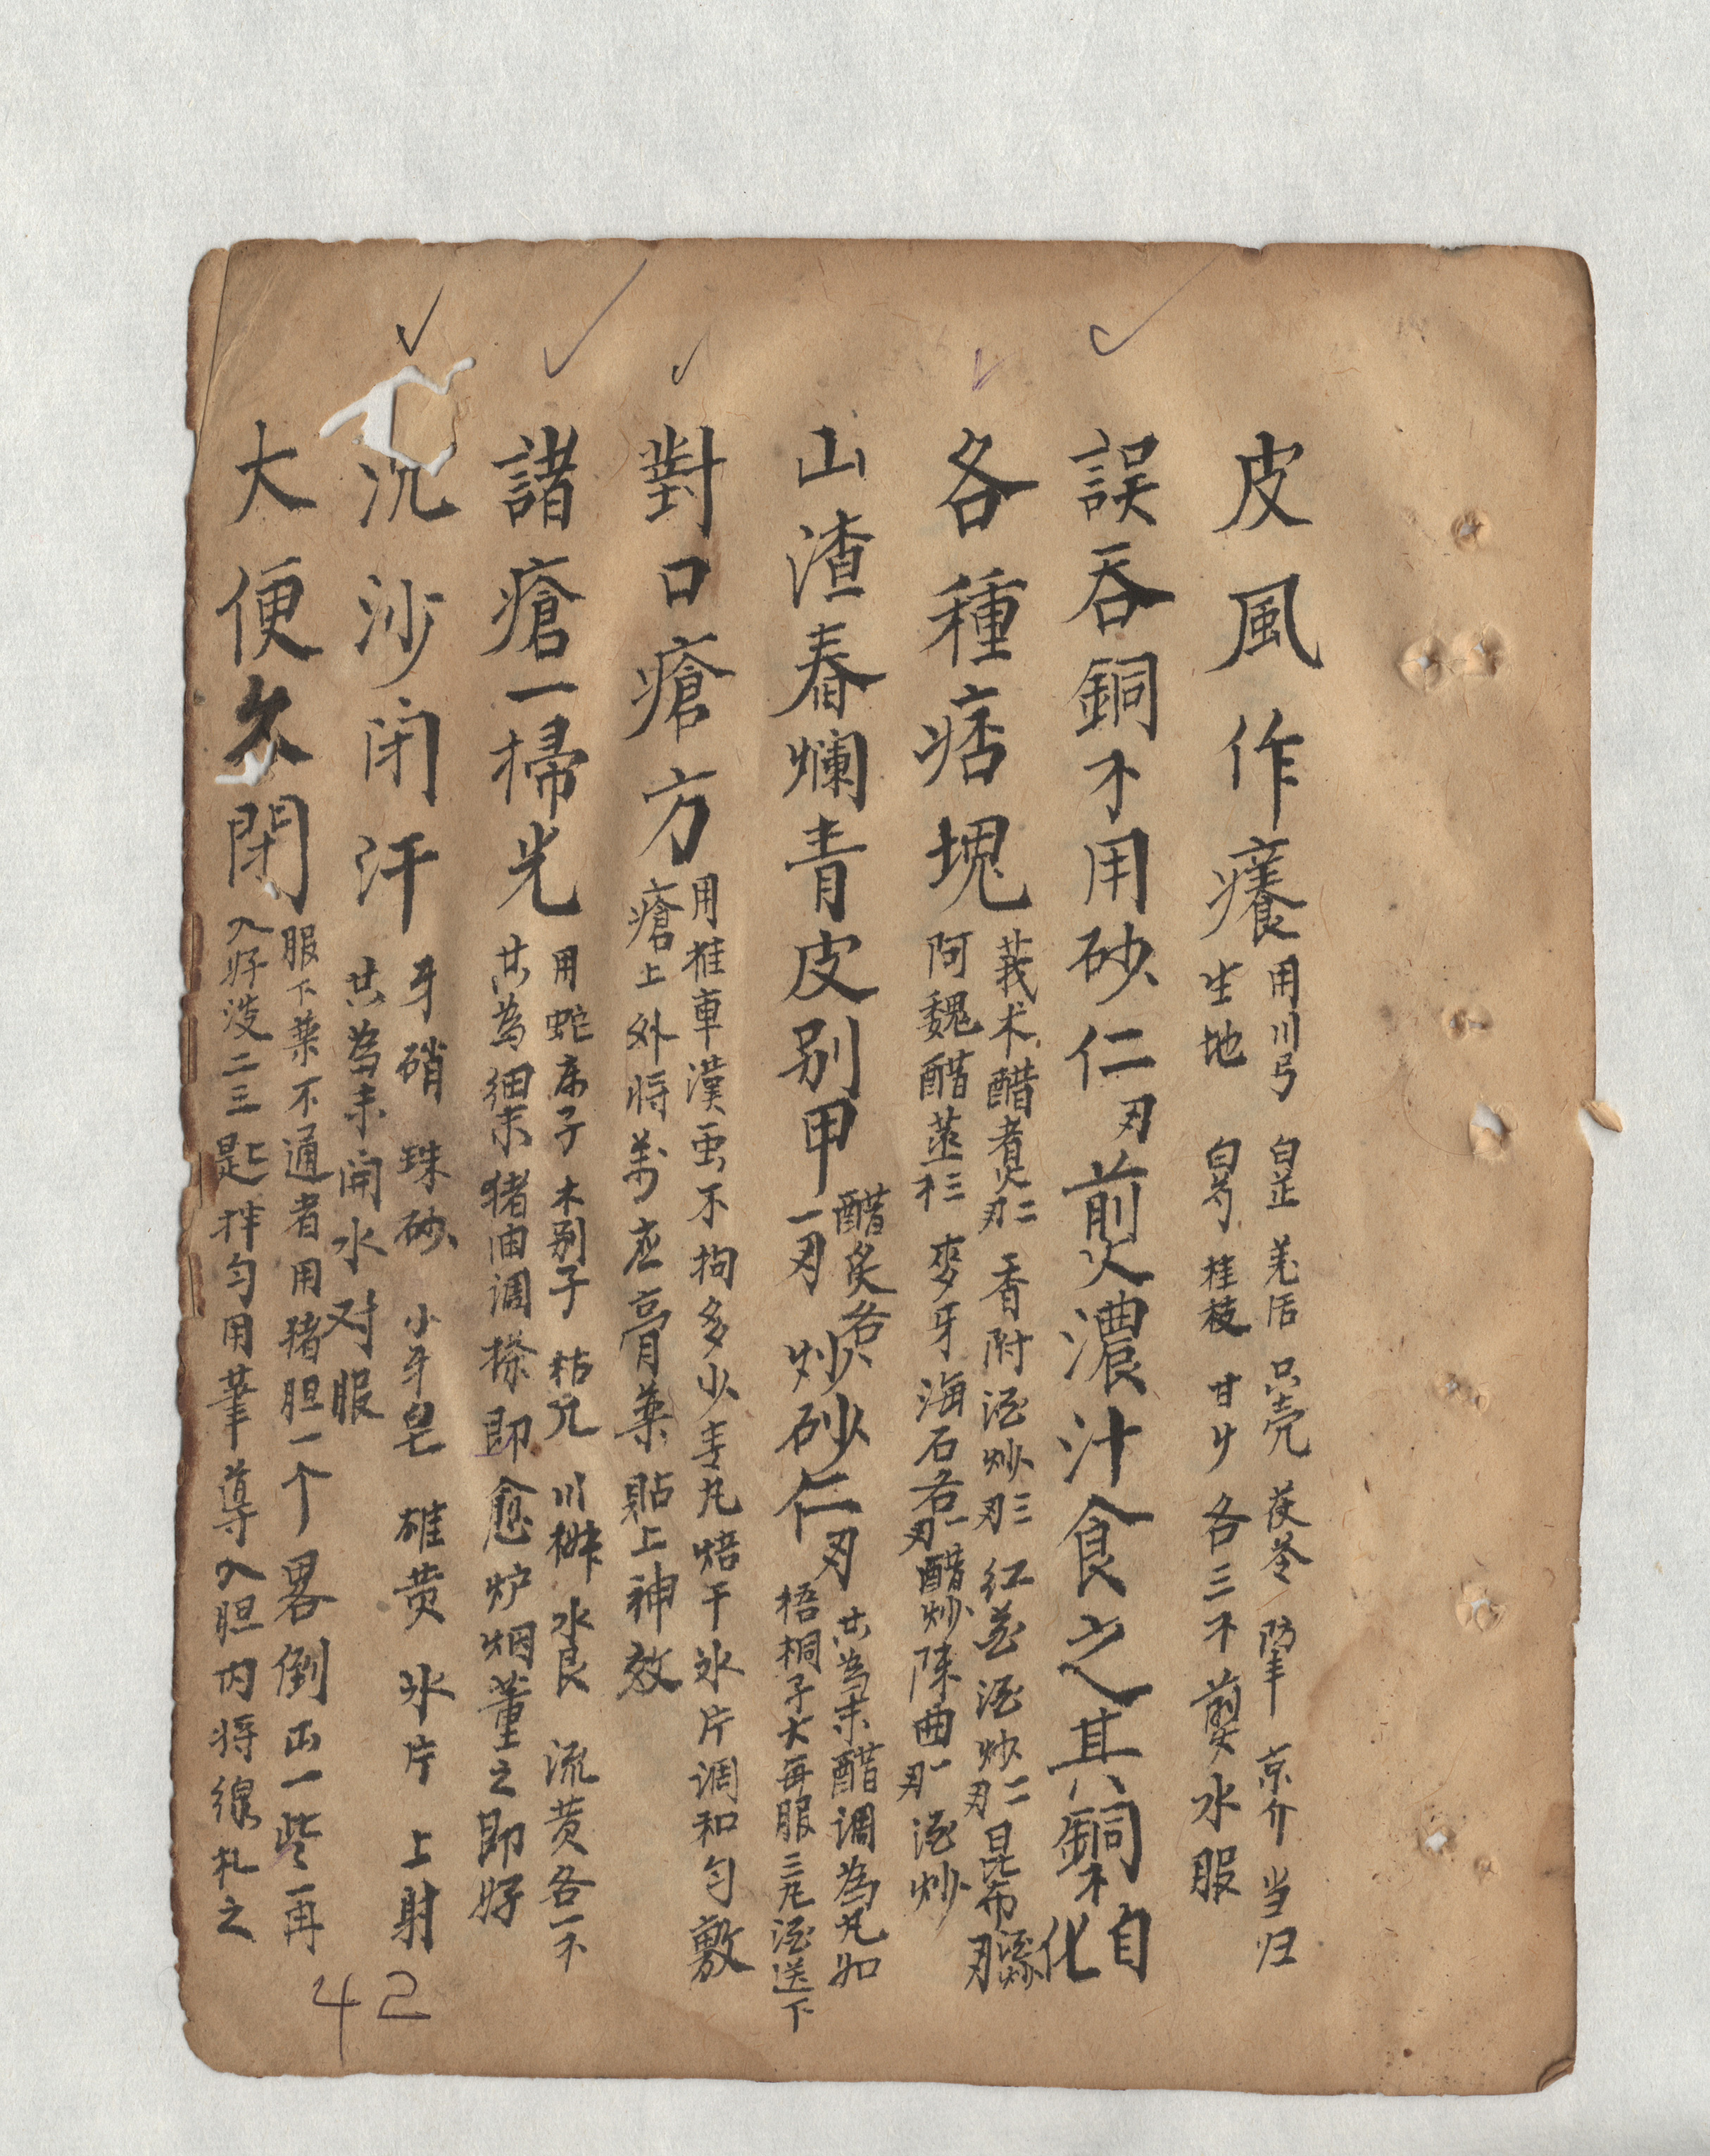 皮風作癢
用川弓 白芷 羌活 只壳 茯苓 防丰 京介 当归
生地 白芍 桂枝 甘廾 各三不 煎水服
誤吞銅不用砂仁刄煎濃汁食之其銅不自化
各種痞塊
莪术醋煮二刄 香附酒炒三刄 红花酒炒二刄 昆布酒炒刄
阿魏醋蒸三不 麥牙 海石各一刄醋炒 陳曲一刄酒炒
山渣春爛青皮别甲
醋炙各
一刄
炒砂仁刄
共為末醋调為丸如
梧桐子大每服三九酒送下
對口瘡方
用推車漢虫不拘多少去壳焙干氷片调和匀敷
瘡上外将萬应膏藥貼上神效
諸瘡一掃光
用蛇床子 木别子 枯凡 川椒 水艮 流黄各一不
共為细末猪油调搽即愈炉烟薰之即好
沉沙闭汗
牙硝 珠砂 小牙皂 雄黄 氷片 上射
共為末開水对服
大便久閉
服下藥不通者用猪胆一个畧倒出一些再
入好淡二三匙拌匀用筆導入胆内将線扎之
42